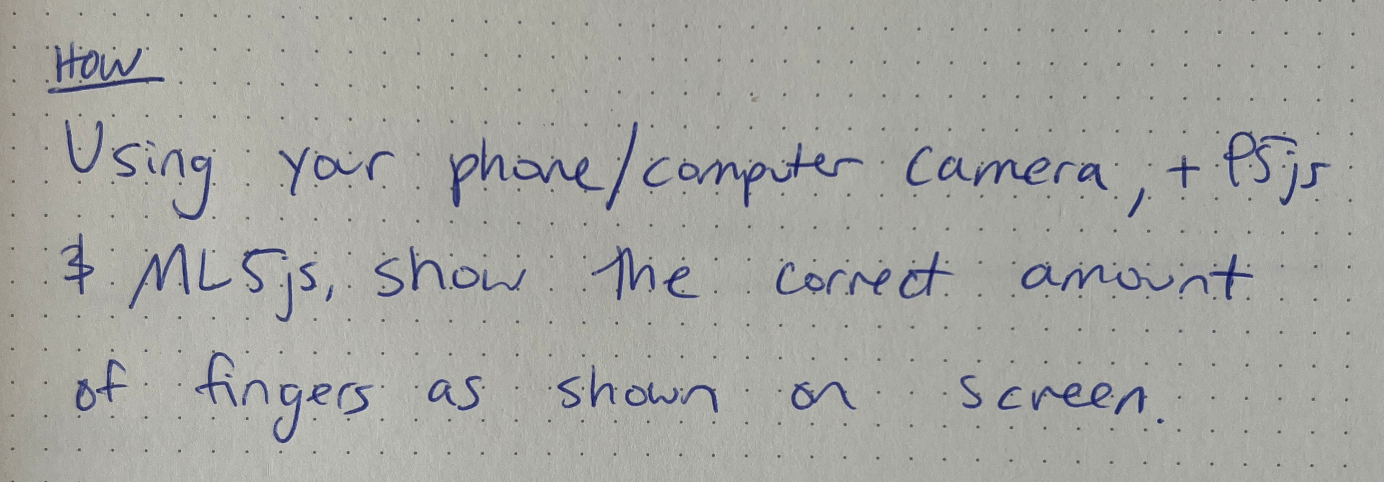 How
Using your phone/computer camera, + P5js
& ML5js, show the correct amount
of fingers as shown on screen.